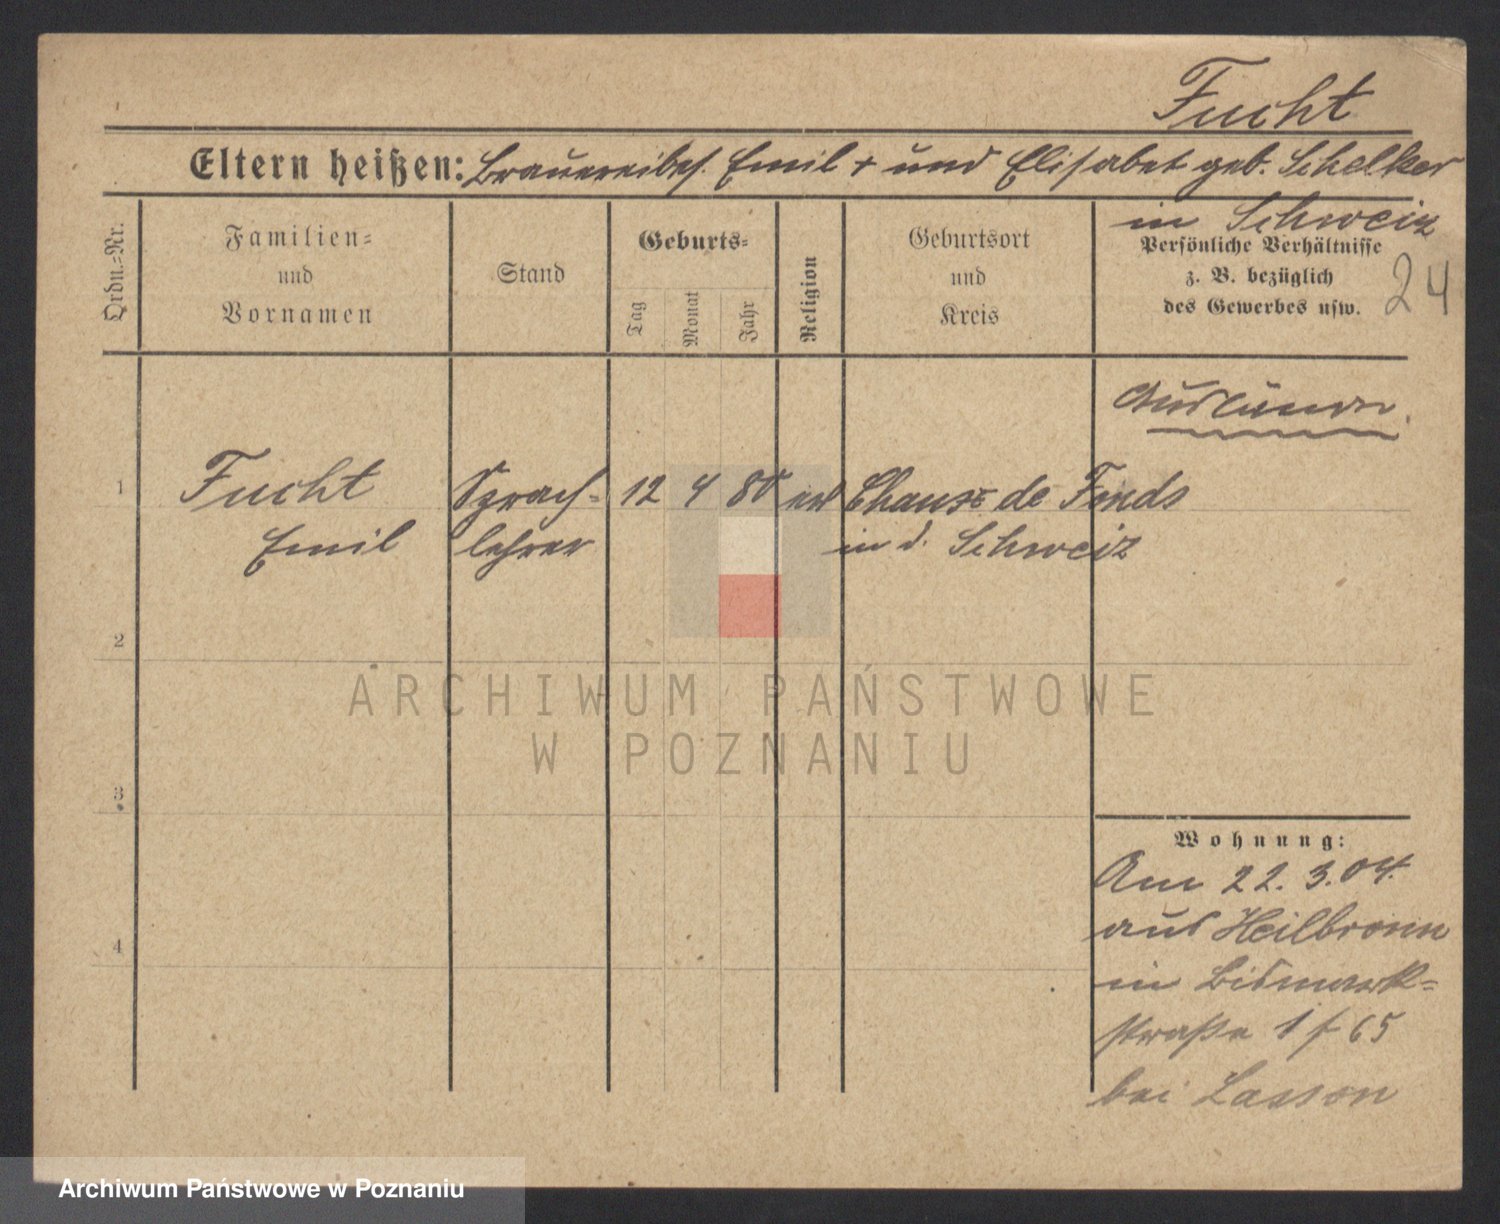 Fucht
Eltern heißen: Brauereibes. Emil + und Elisabet geb. Schelker
in Schweiz
Ordn.-Nr.
Familien-
und
Vornamen
Stand
Geburts-
Tag
Monat
Jahr
Religion
Geburtsort
und
Kreis
Persönliche Verhältnisse
z. B. bezüglich
des Gewerbes usw.
24
Ausländer.
1 Fucht Sprach- 12 4 80 Chause de Fonds
Emil lehrer in d. Schweiz
2
3
4
Wohnung:
Am 22.3.04.
aus Heilbronn
in Bismark-
straße 1 f 65
bei Lasson
ARCHIWUM PAŃSTWOWE
W POZNANIU
Archiwum Państwowe w Poznaniu